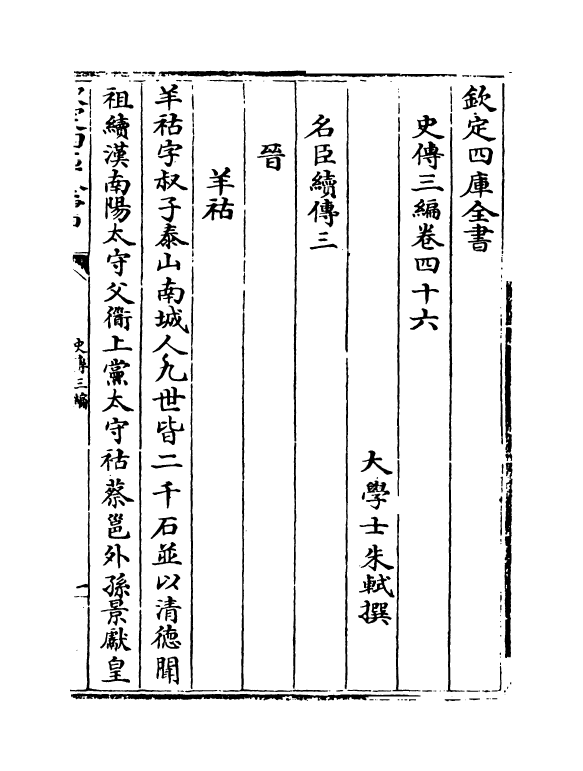 欽定四庫全書
史傳三編卷四十六
大學士朱軾撰
名臣續傳三
晉
羊祜
羊祜字叔子泰山南城人九世皆二千石並以清德聞
祖續漢南陽太守父衜上黨太守祜蔡邕外孫景獻皇
史傳三編
一